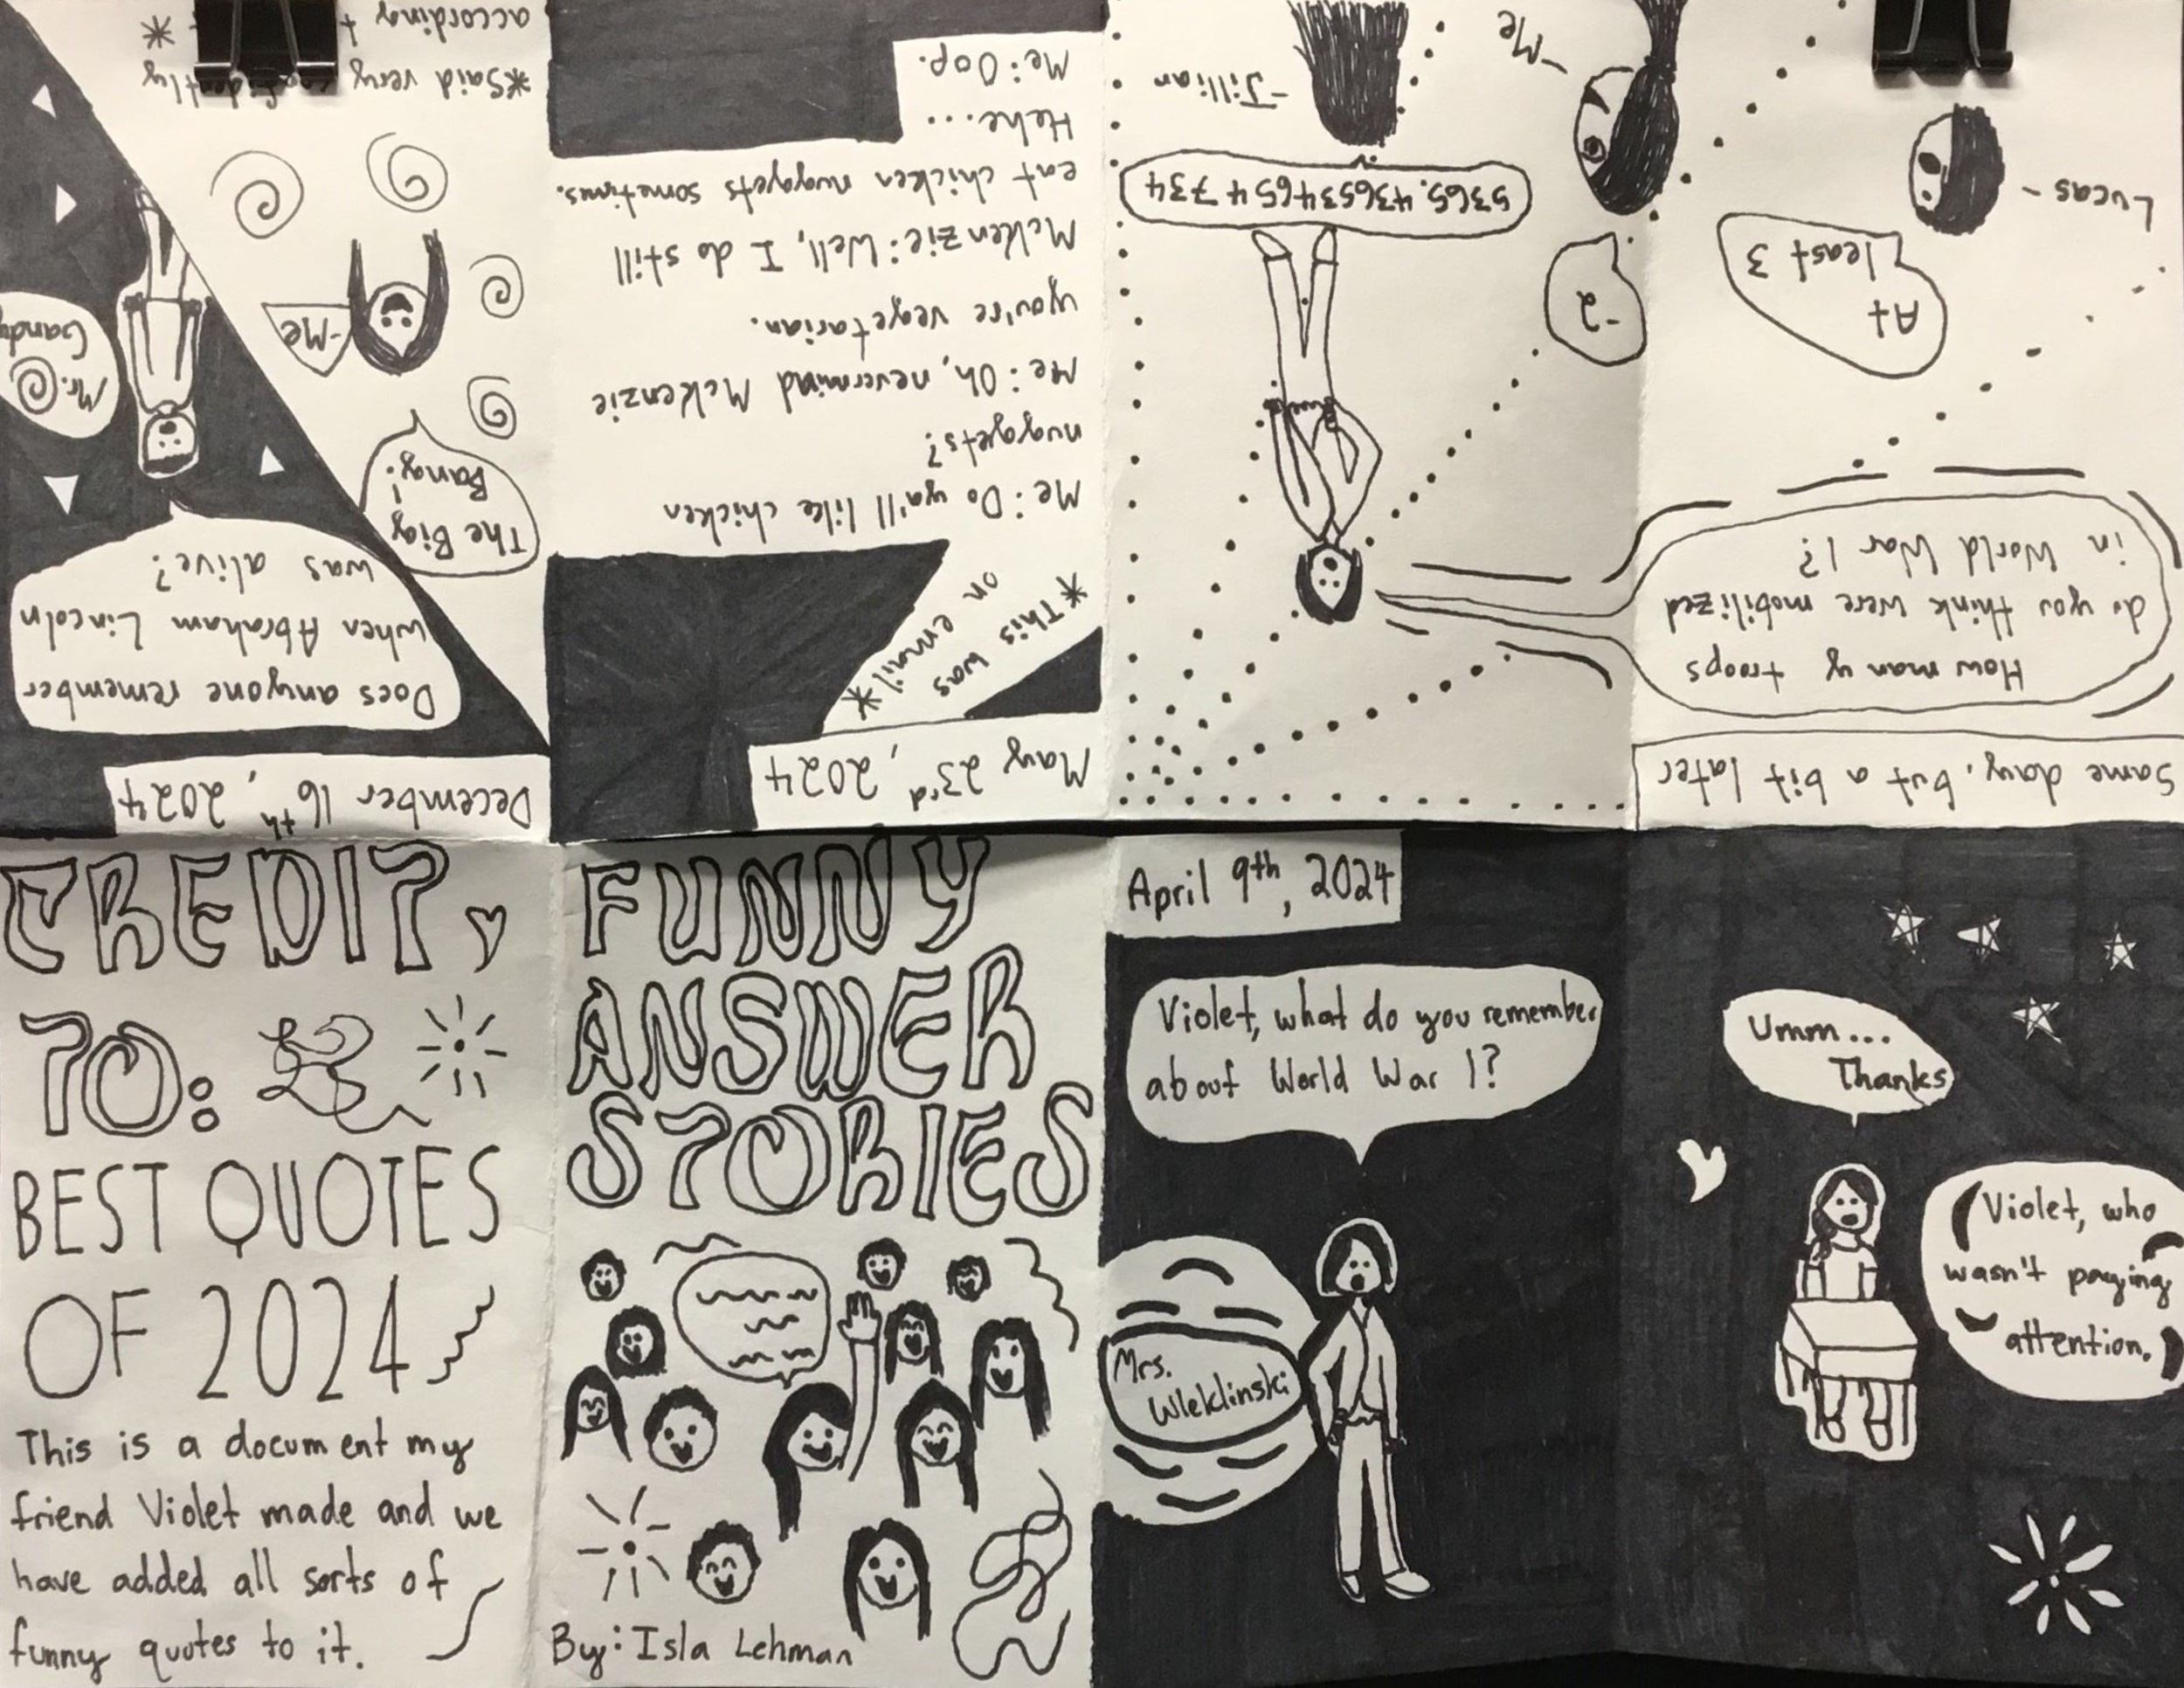 FUNNY
ANSWER
STORIES
By: Isla Lehman
April 9th, 2024
Violet, what do you remember
about World War 1?
Mrs.
Wleklinski
Umm...
Thanks
Violet, who
wasn't paying
attention.
Same day, but a bit later
How many troops
do you think were mobilized
in World War 1?
At
least 3
Lucas -
-2
-Me
5365.436534654734
-Jillian
May 23rd, 2024
*This was
on email*
Me: Do ya'll like chicken
nuggets?
Me: Oh, nevermind Mckenzie
you're vegetarian.
Mckenzie: Well, I do still
eat chicken nuggets sometimes.
Hehe...
Me: Oop.
December 16th, 2024
Does anyone remember
when Abraham Lincoln
was alive?
Mr.
Gandy
The Big
Bang!
-Me
*Said very confidently
according *
CREDIT
TO:
BEST QUOTES
OF 2024
This is a document my
friend Violet made and we
have added all sorts of
funny quotes to it.